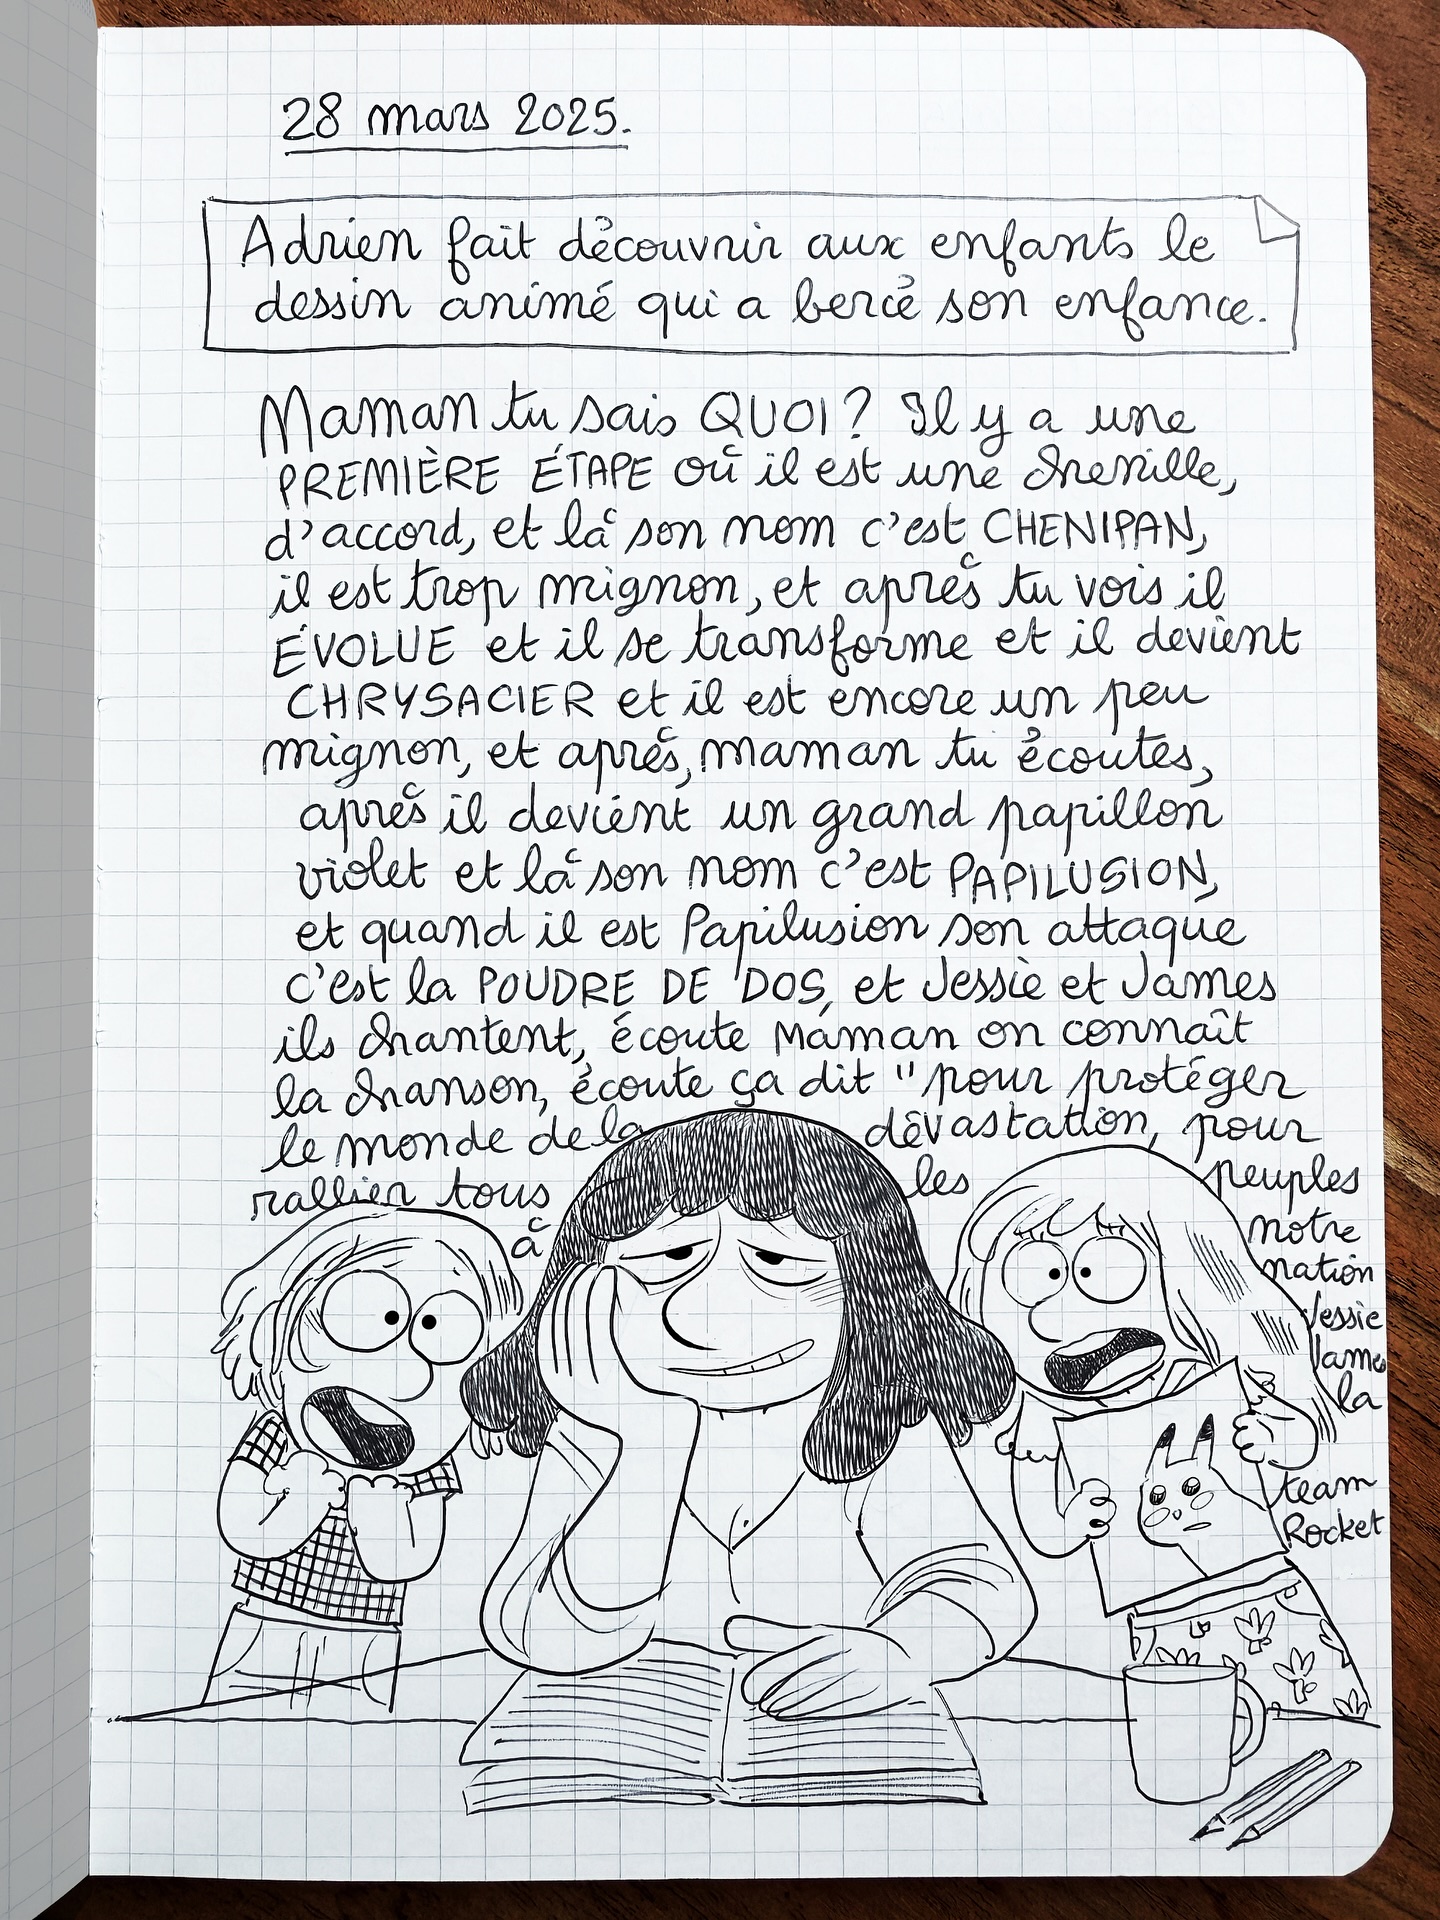 28 mars 2025.
Adrien fait découvrir aux enfants le
dessin animé qui a bercé son enfance.
Maman tu sais QUOI? Il y a une
PREMIÈRE ÉTAPE où il est une chenille,
d'accord, et là son nom c'est CHENIPAN,
il est trop mignon, et après tu vois il
ÉVOLUE et il se transforme et il devient
CHRYSACIER et il est encore un peu
mignon, et après, maman tu écoutes,
après il devient un grand papillon
violet et là son nom c'est PAPILUSION,
et quand il est Papilusion son attaque
c'est la POUDRE DE DOS, et Jessie et James
ils chantent, écoute Maman on connaît
la chanson, écoute ça dit "pour protéger
le monde de la dévastation, pour
rallier tous les peuples
à notre
nation
Jessie
James
la
team
Rocket